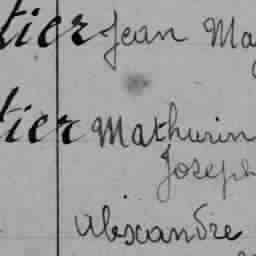 tier Jean Ma
tier Mathurin
Joseph
Alexandre